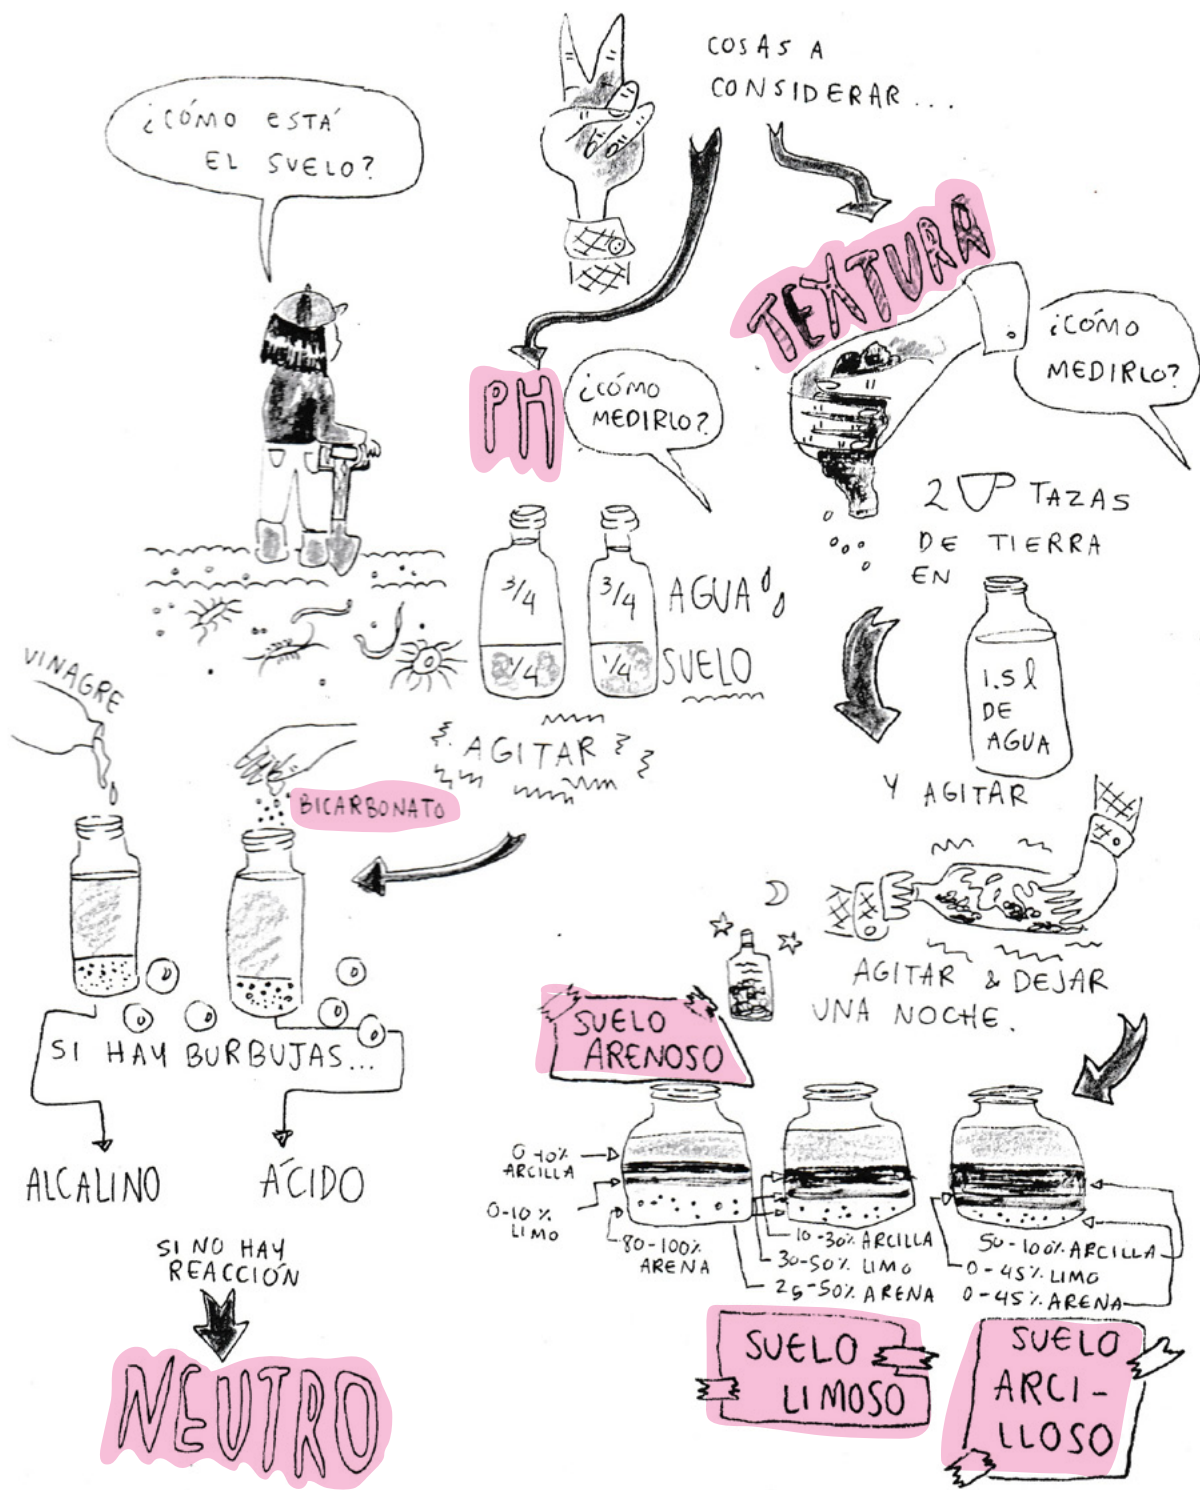 ¿CÓMO ESTÁ
EL SUELO?
COSAS A
CONSIDERAR...
PH
¿CÓMO
MEDIRLO?
3/4
3/4
AGUA
1/4
1/4
SUELO
AGITAR
VINAGRE
BICARBONATO
SI HAY BURBUJAS...
ALCALINO
ÁCIDO
SI NO HAY
REACCIÓN
NEUTRO
TEXTURA
¿CÓMO
MEDIRLO?
2 TAZAS
DE TIERRA
EN
1.5 l
DE
AGUA
Y AGITAR
AGITAR & DEJAR
UNA NOCHE.
SUELO
ARENOSO
0-10%
ARCILLA
0-10%
LIMO
80-100%
ARENA
10-30% ARCILLA
30-50% LIMO
25-50% ARENA
SUELO
LIMOSO
50-100% ARCILLA
0-45% LIMO
0-45% ARENA
SUELO
ARCI-
LLOSO